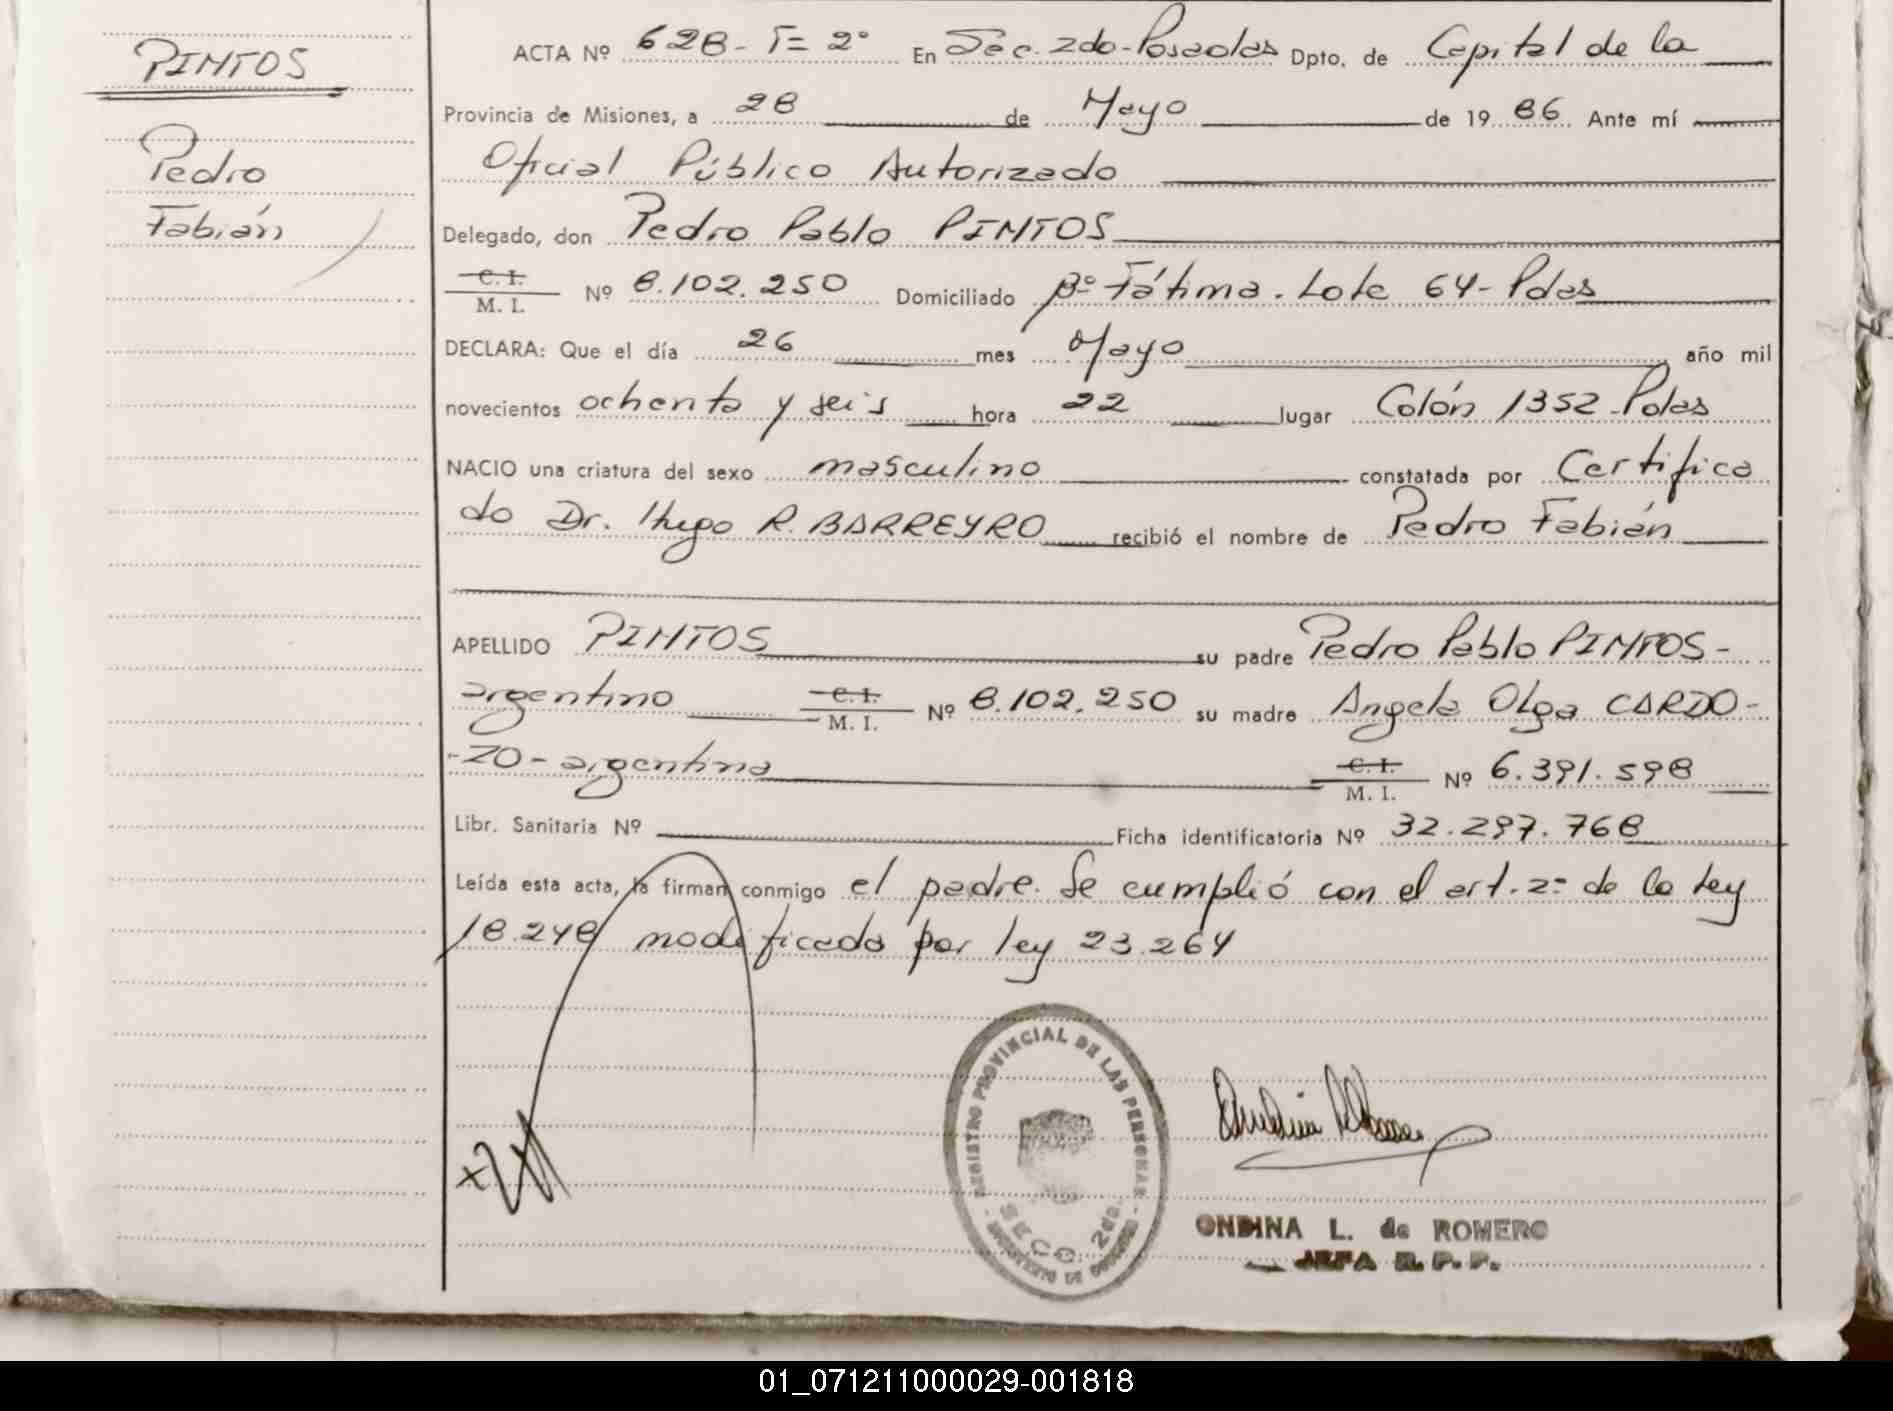 PINTOS
Pedro
Fabián
ACTA Nº 628 - T= 2° En Sec. 2do - Posadas Dpto. de Capital de la
Provincia de Misiones, a 28 de Mayo de 1986 Ante mí
Oficial Público Autorizado
Delegado, don Pedro Pablo PINTOS
C. I.
M. I. Nº 8.102.250 Domiciliado Bº Fátima. Lote 64 - Pdas
DECLARA: Que el día 26 mes Mayo año mil
novecientos ochenta y seis hora 22 lugar Colón 1352 - Pdas
NACIO una criatura del sexo masculino constatada por Certifica
do Dr. Hugo R. BARREYRO recibió el nombre de Pedro Fabián
APELLIDO PINTOS su padre Pedro Pablo PINTOS -
argentino C. I. M. I. Nº 8.102.250 su madre Angela Olga CARDO-
-ZO - argentina C. I. M. I. Nº 6.391.598
Libr. Sanitaria Nº Ficha identificatoria Nº 32.297.768
Leída esta acta, la firman conmigo el padre. Se cumplió con el art. 2= de la Ley
18.248 modificada por ley 23.264
REGISTRO PROVINCIAL DE LAS PERSONAS
SECC. 2do.
MINISTERIO DE GOBIERNO
ONDINA L. de ROMERO
JEFA R. P. P.
01_071211000029-001818